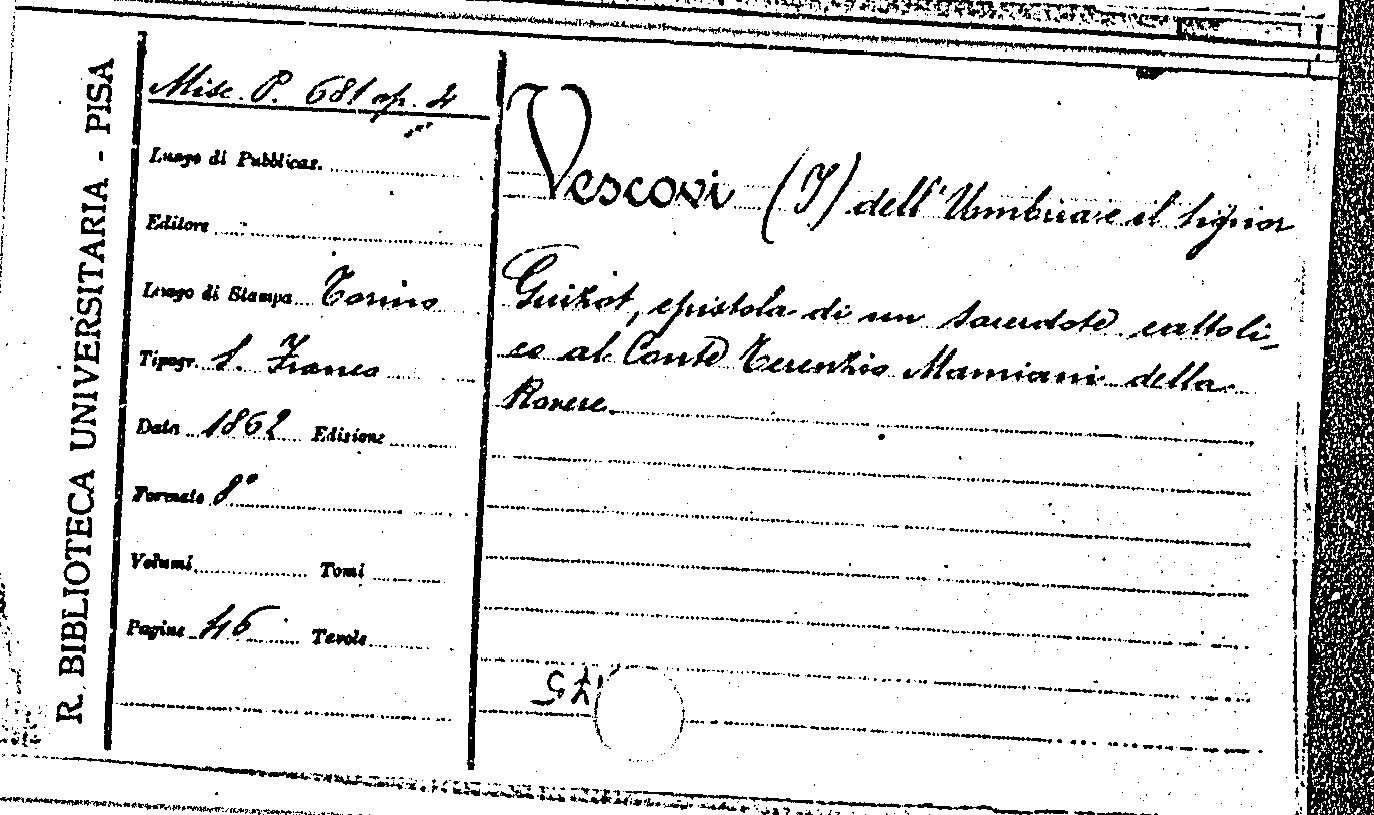 R. BIBLIOTECA UNIVERSITARIA - PISA
Misc. P. 681 op. 4
Luogo di Pubblicaz.
Editore
Luogo di Stampa Torino
Tipogr. S. Franco
Data 1862 Edizione
Formato 8°
Volumi Tomi
Pagine 46 Tavole
Vescovi (I) dell'Umbria e il Signor
Guizot, epistola di un sacerdote cattoli-
co al Conte Terenzio Mamiani della
Rovere